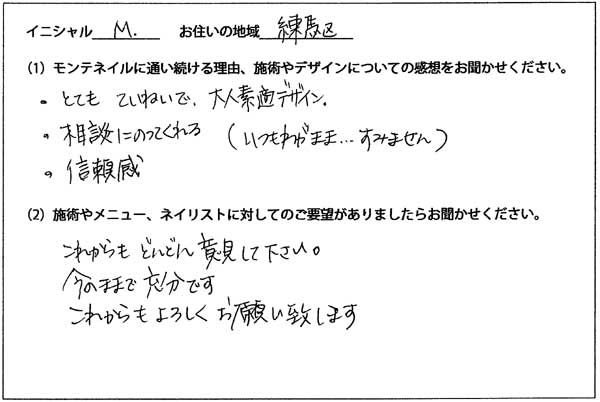 イニシャル M. お住いの地域 練馬区
（1）モンテネイルに通い続ける理由、施術やデザインについての感想をお聞かせください。
・とても ていねいで、大人素適デザイン.
・相談にのってくれる （いつもわがまま…すみません）
・信頼感
（2）施術やメニュー、ネイリストに対してのご要望がありましたらお聞かせください。
これからも どんどん 意見して下さい。
今のままで 充分です
これからも よろしく お願い致します